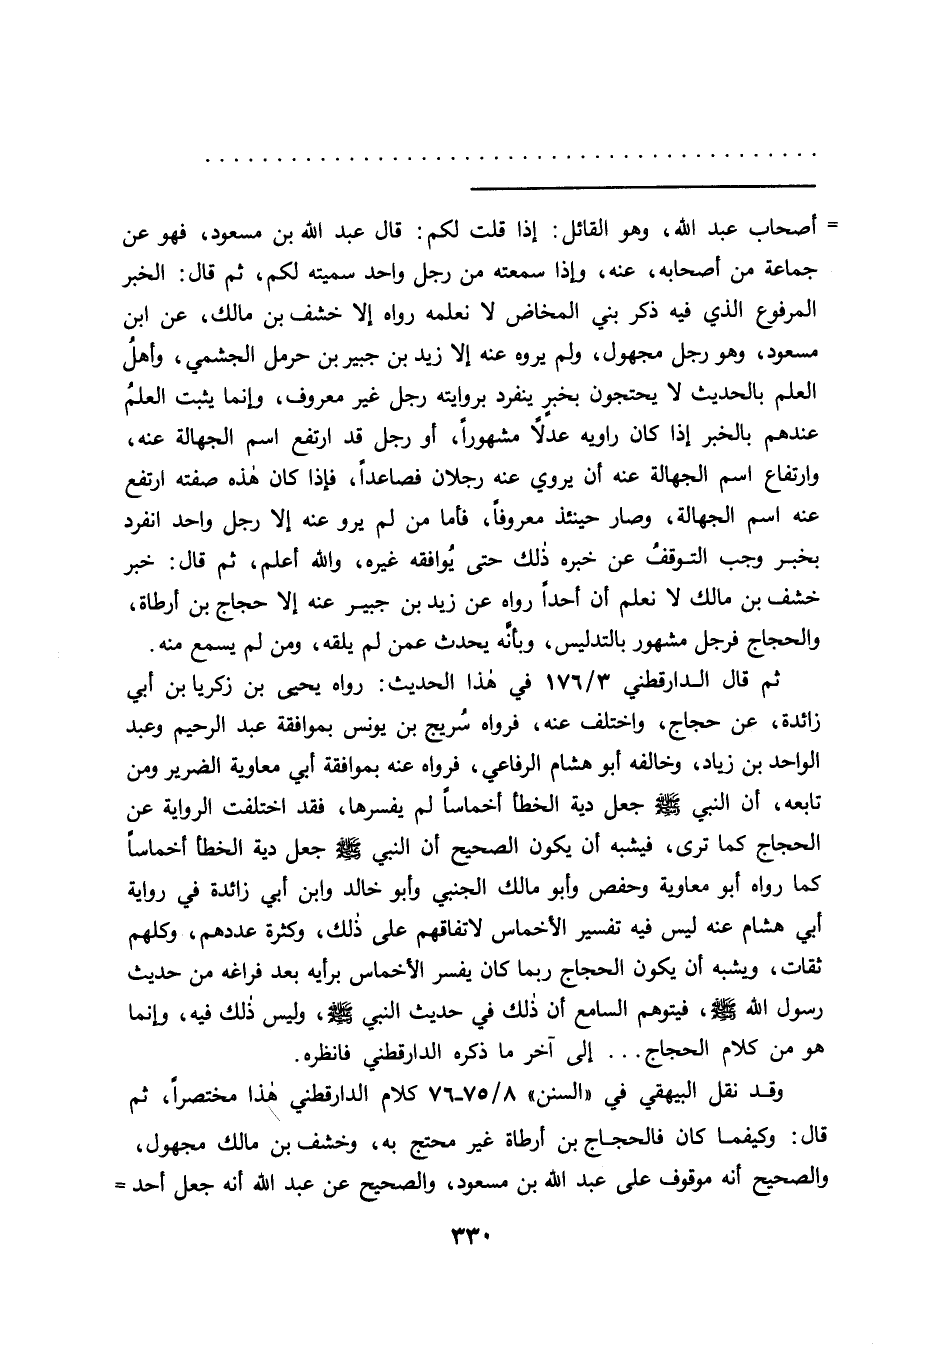 . . . . . . . . . . . . . . . . . . . . . . . . . . . . . . . . . . . . . . . . . . .
= أصحاب عبد الله، وهو القائل: إذا قلت لكم: قال عبد الله بن مسعود، فهو عن
جماعة من أصحابه، عنه، وإذا سمعته من رجل واحد سميته لكم، ثم قال: الخبر
المرفوع الذي فيه ذكر بني المخاض لا نعلمه رواه إلا خشف بن مالك، عن ابن
مسعود، وهو رجل مجهول، ولم يروه عنه إلا زيد بن جبير بن حرمل الجشمي، وأهلُ
العلم بالحديث لا يحتجون بخبرٍ ينفرد بروايته رجل غير معروف، وإنما يثبت العلمُ
عندهم بالخبر إذا كان راويه عدلًا مشهوراً، أو رجل قد ارتفع اسم الجهالة عنه،
وارتفاع اسم الجهالة عنه أن يروي عنه رجلان فصاعداً، فإذا كان هٰذه صفته ارتفع
عنه اسم الجهالة، وصار حينئذ معروفاً، فأما من لم يرو عنه إلا رجل واحد انفرد
بخبر وجب التوقفُ عن خبره ذٰلك حتى يُوافقه غيره، والله أعلم، ثم قال: خبر
خشف بن مالك لا نعلم أن أحداً رواه عن زيد بن جبير عنه إلا حجاج بن أرطاة،
والحجاج فرجل مشهور بالتدليس، وبأنَّه يحدث عمن لم يلقه، ومن لم يسمع منه.
ثم قال الدارقطني ١٧٦/٣ في هٰذا الحديث: رواه يحيى بن زكريا بن أبي
زائدة، عن حجاج، واختلف عنه، فرواه سُريج بن يونس بموافقة عبد الرحيم وعبد
الواحد بن زياد، وخالفه أبو هشام الرفاعي، فرواه عنه بموافقة أبي معاوية الضرير ومن
تابعه، أن النبي ﷺ جعل دية الخطأ أخماساً لم يفسرها، فقد اختلفت الرواية عن
الحجاج كما ترى، فيشبه أن يكون الصحيح أن النبي ﷺ جعل دية الخطأ أخماساً
كما رواه أبو معاوية وحفص وأبو مالك الجنبي وأبو خالد وابن أبي زائدة في رواية
أبي هشام عنه ليس فيه تفسير الأخماس لاتفاقهم على ذٰلك، وكثرة عددهم، وكلهم
ثقات، ويشبه أن يكون الحجاج ربما كان يفسر الأخماس برأيه بعد فراغه من حديث
رسول الله ﷺ، فيتوهم السامع أن ذٰلك في حديث النبي ﷺ، وليس ذٰلك فيه، وإنما
هو من كلام الحجاج... إلى آخر ما ذكره الدارقطني فانظره.
وقد نقل البيهقي في «السنن» ٧٥/٨-٧٦ كلام الدارقطني هٰذا مختصراً، ثم
قال: وكيفما كان فالحجاج بن أرطاة غير محتج به، وخشف بن مالك مجهول،
والصحيح أنه موقوف على عبد الله بن مسعود، والصحيح عن عبد الله أنه جعل أحد =
٣٣٠